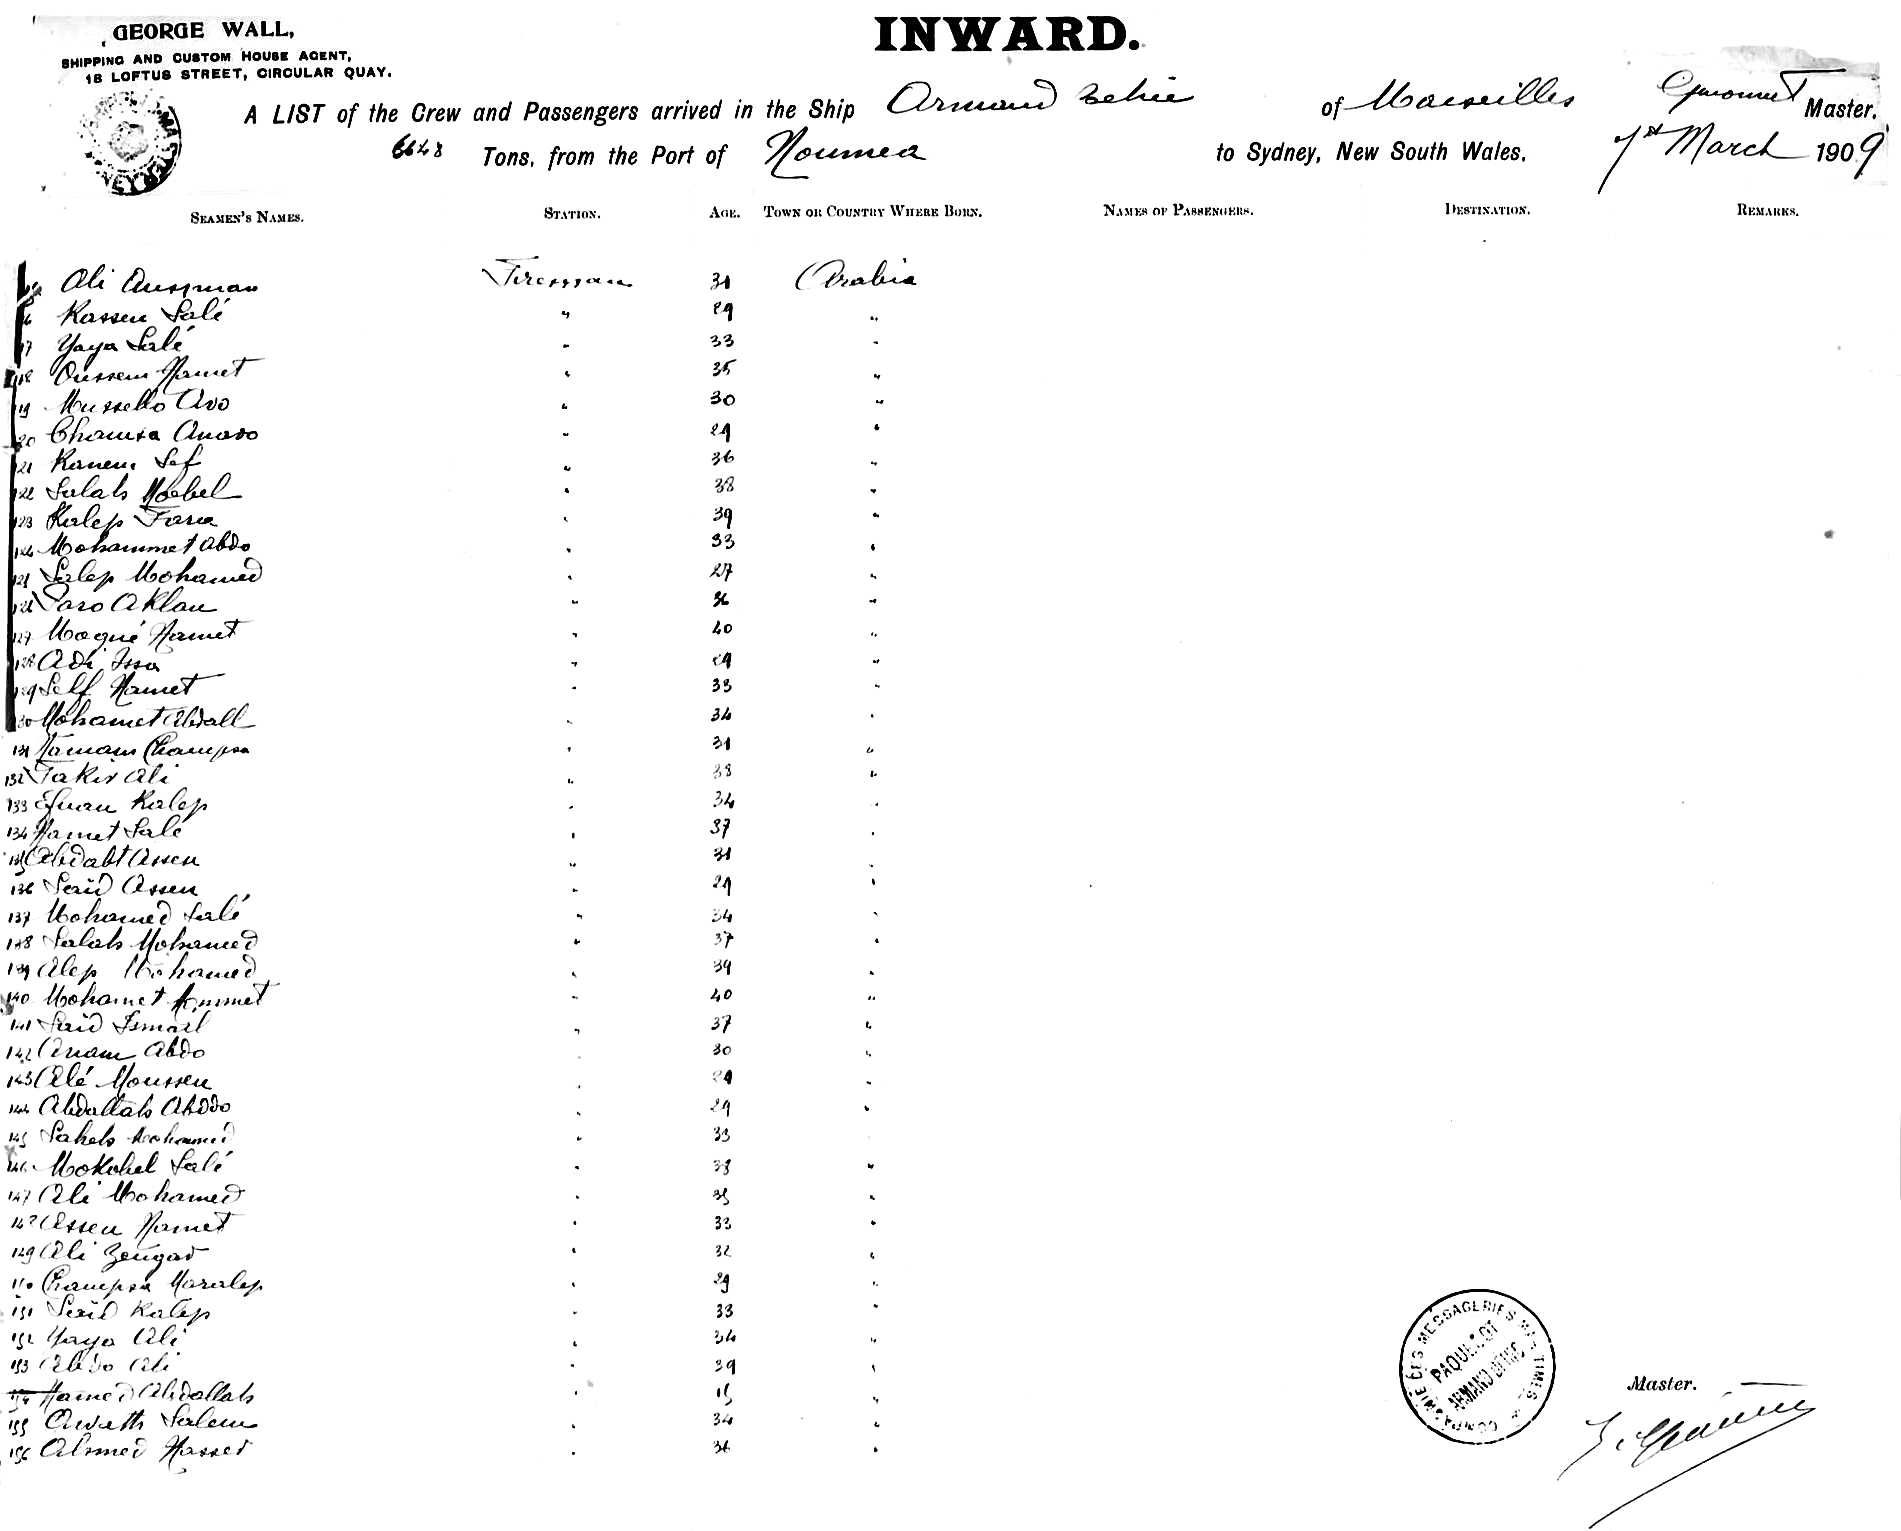 GEORGE WALL,
SHIPPING AND CUSTOM HOUSE AGENT,
18 LOFTUS STREET, CIRCULAR QUAY.
INWARD.
A LIST of the Crew and Passengers arrived in the Ship Armand Behic of Marseilles Master,
6648 Tons, from the Port of Noumea to Sydney, New South Wales, 7th March 1909
SEAMEN'S NAMES. STATION. AGE. TOWN OR COUNTRY WHERE BORN. NAMES OF PASSENGERS. DESTINATION. REMARKS.
Ali Aussman Fireman 31 Arabia
Kassen Salé " 29 "
Yaya Salé " 33 "
Oussem Hamet " 35 "
19 Mussello Avo " 30 "
20 Chamsa Anavo " 29 "
121 Kanem Sef " 36 "
122 Salah Mocbel " 38 "
123 Kalep Fara " 39 "
124 Mohammet Abdo " 33 "
125 Salep Mohamed " 27 "
126 Saro Aklan " 36 "
127 Moqné Hamet " 40 "
128 Adi Issa " 29 "
129 Self Hamet " 33 "
130 Mohamet Abdall " 34 "
131 Hamam Champsa " 31 "
132 Takir Ali " 38 "
133 Esnan Kalep " 34 "
134 Hamet Salé " 37 "
135 Abdabt Assen " 31 "
136 Said Assen " 29 "
137 Mohamed Salé " 34 "
138 Salah Mohamed " 37 "
139 Alep Mohamed " 39 "
140 Mohamet Ammet " 40 "
141 Said Ismail " 37 "
142 Anam Abdo " 30 "
143 Alé Moussen " 29 "
144 Abdallah Abddo " 29 "
145 Saheb Mohamed " 33
146 Mokobel Salé " 38 "
147 Ali Mohamed " 35 "
148 Assen Hamet " 33 "
149 Ali Zengar " 32 "
150 Champsa Maralep " 29 "
151 Said Kalep " 33 "
152 Yaya Ali " 34 "
153 Abdo Ali " 39 "
154 Hamed Abdallah " 15 "
155 Awath Salem " 34 "
156 Ahmed Nasser " 36 "
COMPAGNIE DES MESSAGERIES MARITIMES
PAQUEBOT
ARMAND BEHIC
Master.